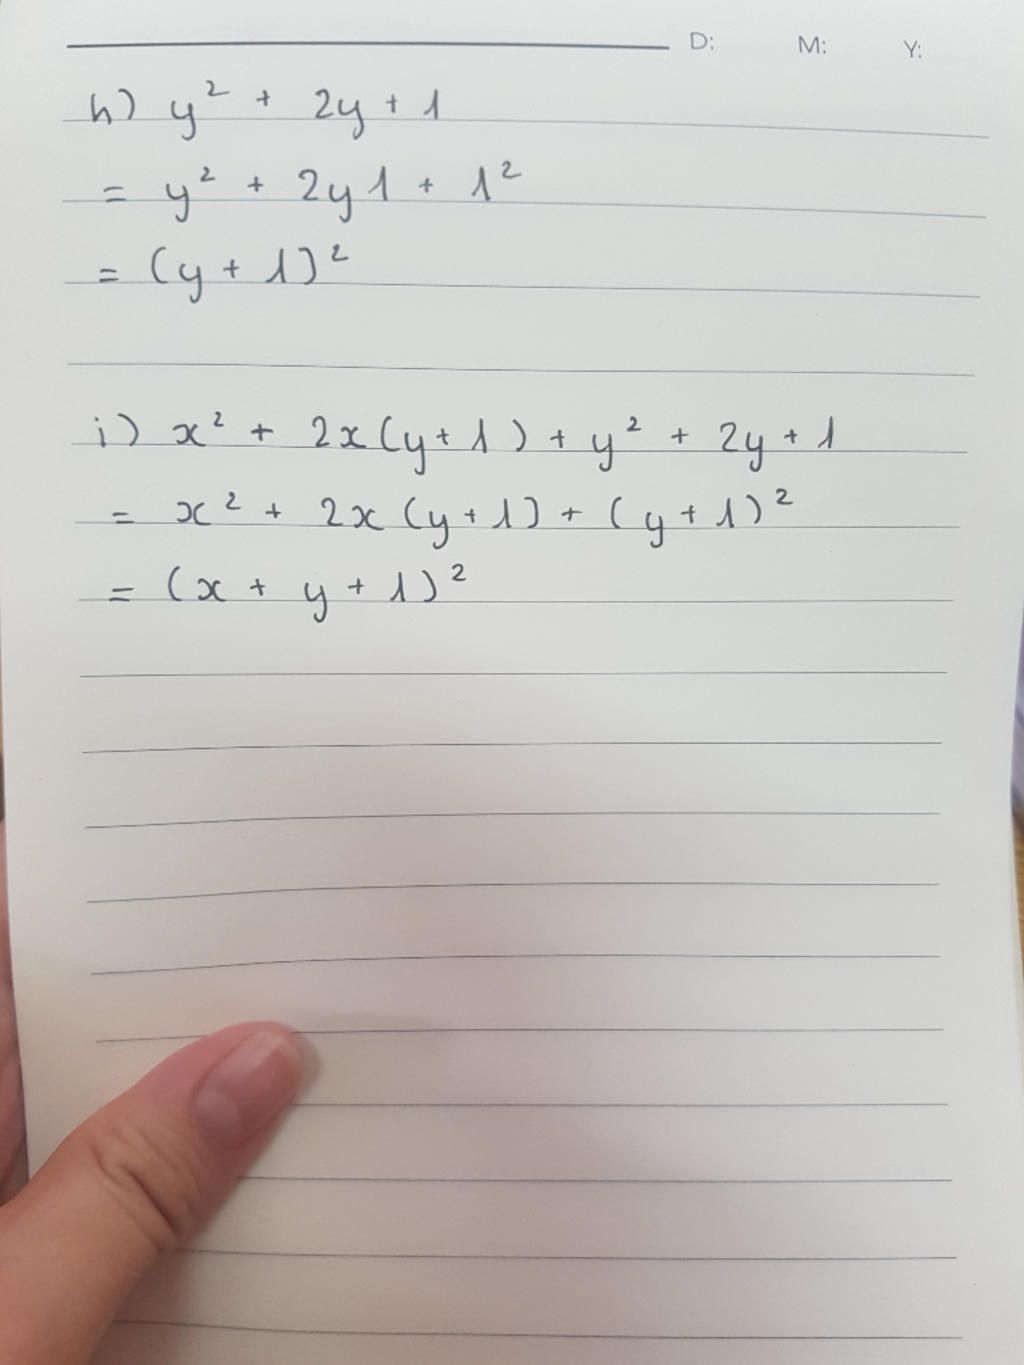 D: M: Y:
h) y² + 2y + 1
= y² + 2y1 + 1²
= (y + 1)²
i) x² + 2x(y+1) + y² + 2y + 1
= x² + 2x(y+1) + (y+1)²
= (x + y + 1)²